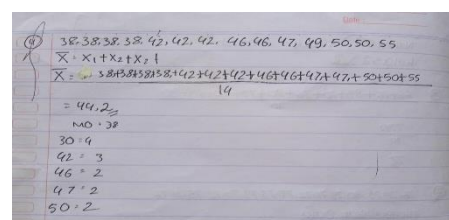 Date
9
38.38.38.38.42,42,42. 46,46,47,49,50,50,55
X̄ = X₁+X₂+X₂+
X̄ = 38+38+38+38+42+42+42+46+46+47+47+50+50+55
14
= 44,2
MO = 38
30=4
42 = 3
46 = 2
47=2
50=2